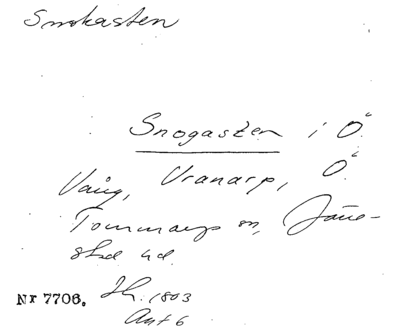 Snokasten
Snogaszen i Ö.
Vång, Vranarp, Ö.
Tommarps sn, Järre-
stad hd.
Nr 7706. Jh. 1803
Akt 6